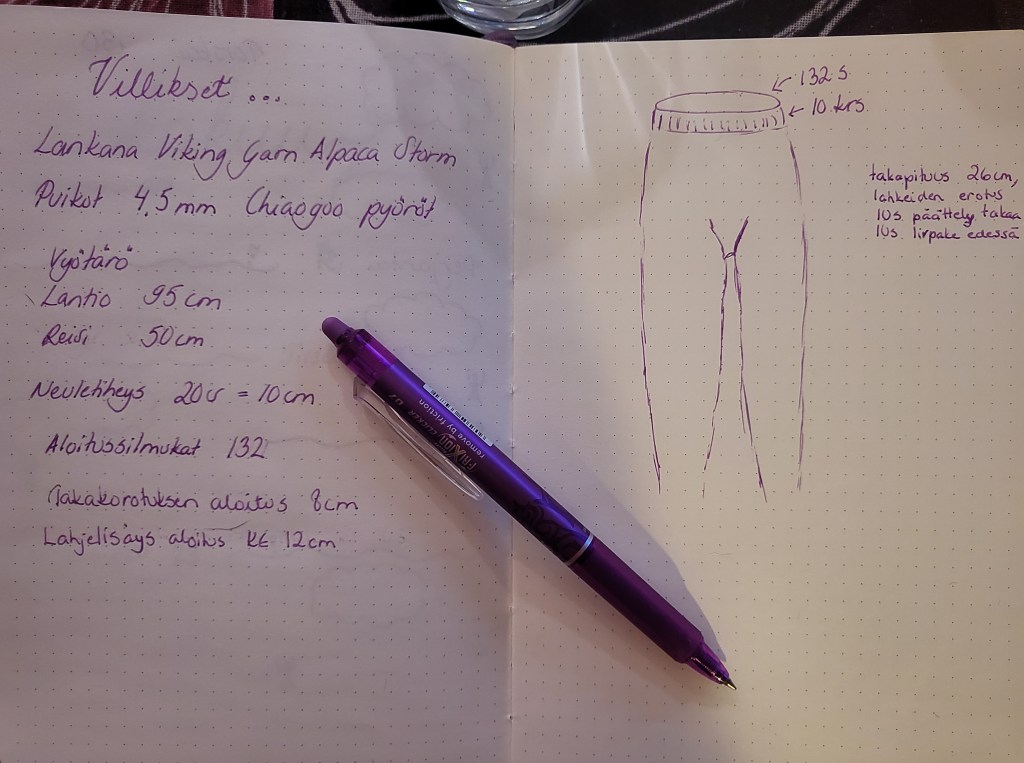 Villikset ...
Lankana Viking Garn Alpaca Storm
Puikot 4,5 mm Chiaogoo pyöröt
Vyötärö
Lantio 95 cm
Reisi 50 cm
Neuletiheys 20s = 10cm
Aloitussilmukat 132
Takakorotuksen aloitus 8cm
Lahjelisäys aloitus KE 12cm
132 s
10 krs
takapituus 26cm,
lahkeiden erotus
10s päättely takaa
10s lirpake edessä
remove by friction
FRIXION CLICKER 07